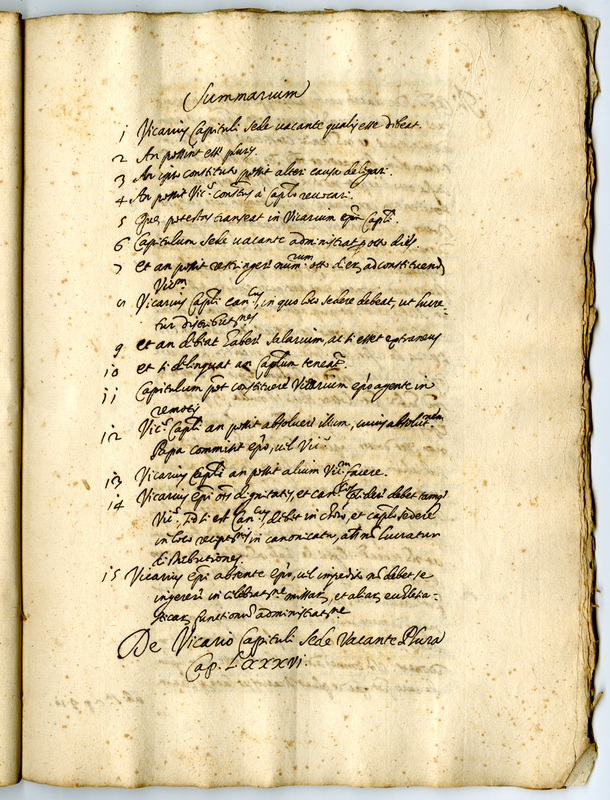 Summarium
1 Vicarius Capituli Sede vacante qualis esse debeat.
2 An possint esse plures.
3 An ipse constitutus possit alteri causas delegari.
4 An possit Vic.s constitus à Caplo revocari.
5 Quae potestas transeat in Vicarium Capli.
6 Capitulum Sede vacante administrat
7 et an possit restringere num.rum ad constituend
Vicm
8 Vicarius Capli can.cus, in quo loco sedere debeat, ut lucre-
tur distribut.nes
9 et an debeat habere salarium, ac si esset extraneus
10 et si delinquat an Caplum teneat.
11 Capitulum pot constituere Vicarium epo agente in
remotis
12 Vic.s Capli an possit absolvere illum, cuius absolut.nem
Papa commisit epo, vel Vic.
13 Vicarius Capli an possit alium Vic.m facere.
14 Vicarius epi dignitatis, et can.cis debet
Vic.s, sed si est Can.cus, debet in choro, et caplo sedere
in loco recept.s in canonicatu, als no lucratur
distributiones.
15 Vicarius epi absente epo, vel impedito no debet se
ingerere in celebrat.ne missar, et aliar ecclesia-
sticar functionu administrat.ne
De Vicario Capituli Sede Vacante Plura
Cap. LXXXVI.